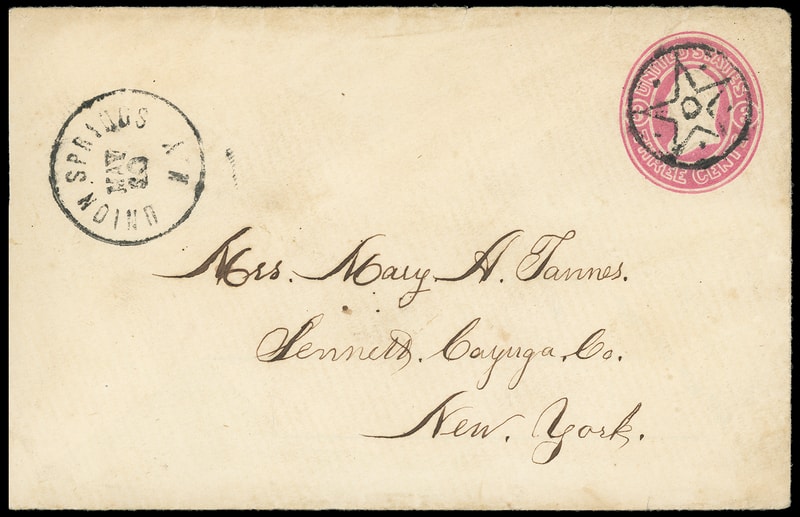 UNION SPRINGS N.Y.
MAY
UNITED STATES
THREE CENTS
Mrs. Mary. A. Tanner.
Sennett. Cayuga, Co.
New. York.